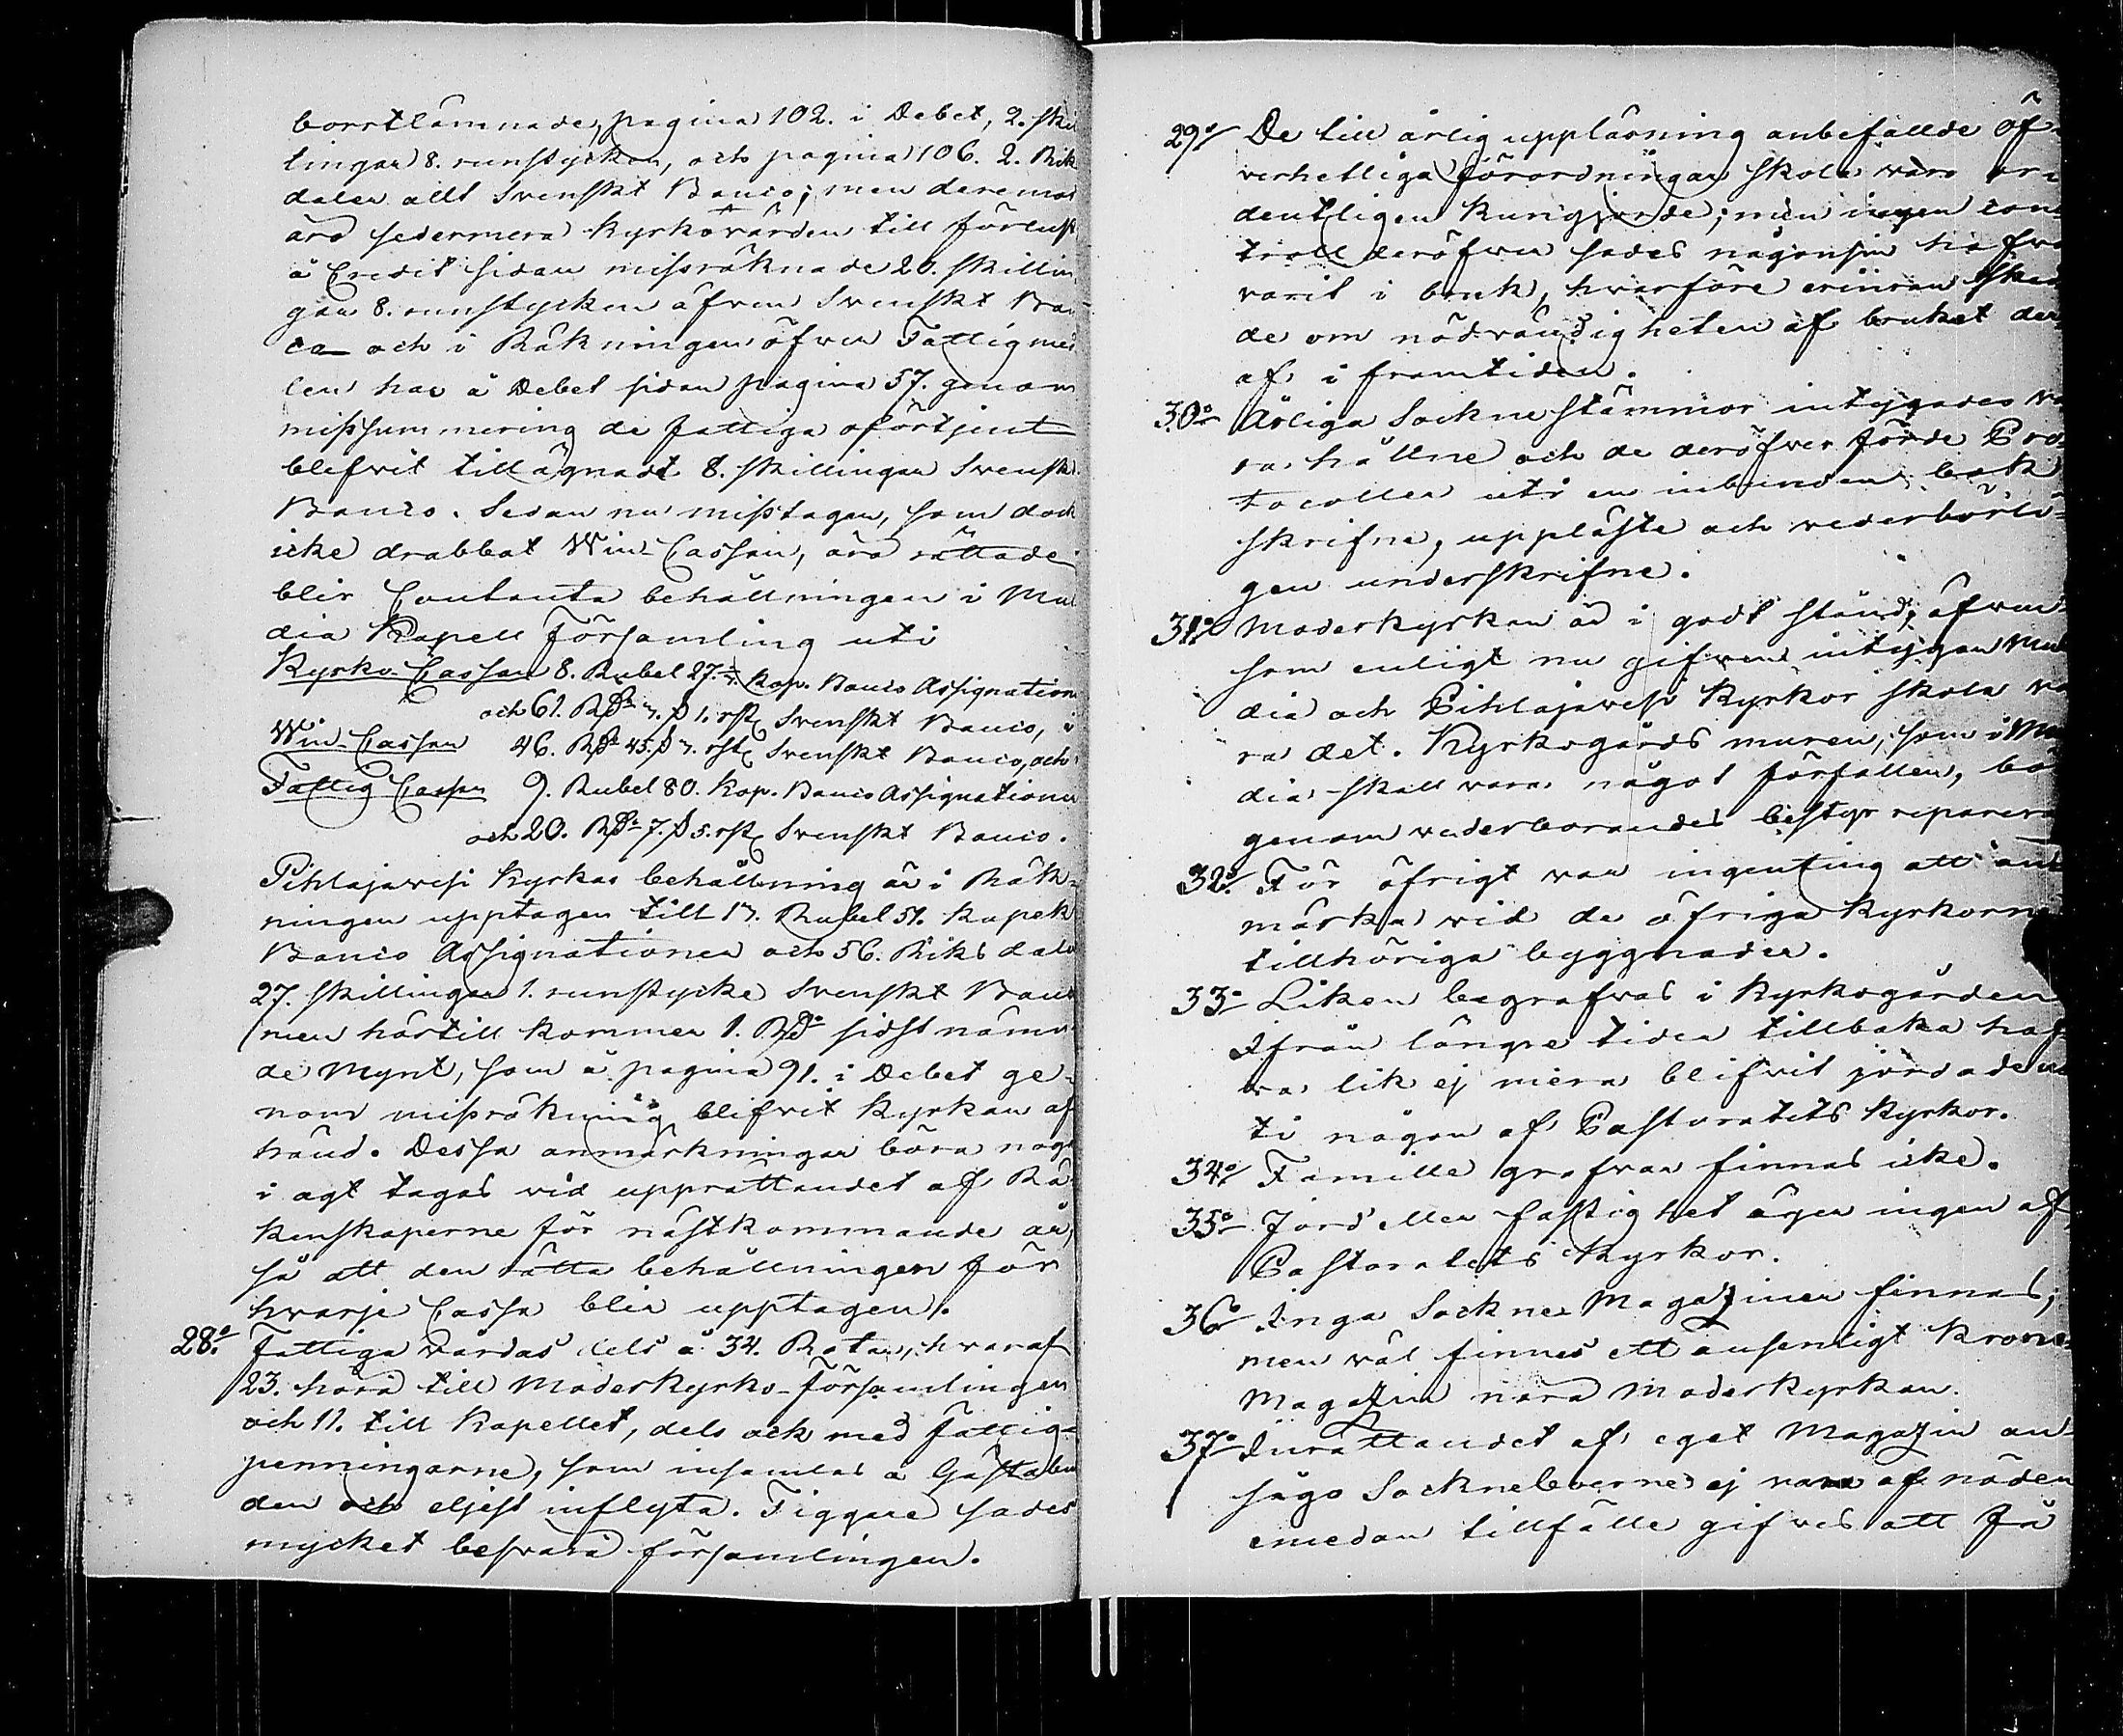 borrtlämnade, pagina 102. i Debet, 2. skil
lingar 8. runstycken, och pagina 106. 2. Rik
daler allt Svenskt Banco; men deremot
äro sedermera kyrkovärden till förlust
å Credit sidan missräknade 20. skillin
gar 8. runstycken äfven Svenskt Ban
co och i Räkningen öfver Fattigmed
len har å Debet sidan pagina 57. genom
missummering de fattiga oförtjent
blefvit tillägnadt 8. skillingar Svenskt
Banco. Sedan nu misstagen, som dock
icke drabbat Win-Cassan, äro rättade
blir Contanta behållningen i Mul
dia Kapell Församling uti
Kyrko-Cassan 8. Rubel 27. Kop. Banco Assignationer
och 61. Rd 7. s 1. rst. Svenskt Banco, i
Win-Cassan 46. Rd 45. s 7. rst. Svenskt Banco, och i
Fattig-Cassan 9. Rubel 80. Kop. Banco Assignationer
och 20. Rd 7. s 5. rst. Svenskt Banco.
Pihlajavesi Kyrkas behållning är i Räk-
ningen upptagen till 17. Rubel 51. Kopek
Banco Assignationer och 56. Riks daler
27. skillingar 1. runstycke Svenskt Banco
men härtill kommer 1. Rd sidst nämn
de Mynt, som å pagina 91. i Debet ge-
nom missräkning blifvit Kyrkan af
händ. Dessa anmärkningar böra noga
i agt tagas vid upprättandet af Rä
kenskaperne för nästkommande år,
så att den rätta behållningen för
hvarje Cassa blir upptagen.
28:o Fattiga vårdas dels å 34. Rotar, hvaraf
23. höra till Moderkyrko-Församlingen
och 11. till Kapellet, dels ock med fattig-
penningarne, som insamlas å Gästabu
den och eljest inflyta. Tiggare sades
mycket besvära församlingen.
29:o De till årlig uppläsning anbefallde Öf-
verhetliga förordningar skola vara or-
dentligen kungjorde; men ingen con-
troll deröfver sades någonsin hafva
varit i bruk, hvarföre erinran sked
de om nödvändigheten af bruket der
af i framtiden.
30:o Årliga Sockne stämmor intygades va
ra hållne och de deröfver förde Pro-
tocoller uti en inbunden bok
skrifne, uppläste och vederbörli-
gen underskrifne.
31:o Moderkyrkan är i godt stånd, äfven
som enligt nu gifven intygan Mul
dia och Pihlajavesi Kyrkor skola va
ra det. Kyrkogårds muren, som i Mul
dia skall vara något förfallen, bör
genom vederborandes bestyr reparera
32:o För öfrigt var ingenting att an
märka vid de öfriga Kyrkorne
tillhöriga byggnader.
33:o Liken begrafvas i Kyrkogården
Ifrån längre tider tillbaka haf
va lik ej mera blifvit jordade u
ti någon af Pastoratets Kyrkor.
34:o Famille grafvar finnas icke.
35:o Jord eller fastighet äger ingen af
Pastoratets Kyrkor.
36:o Inga Sockne Magaziner finnas;
men väl finnes ett ansenligt Krono
Magazin nära Moderkyrkan.
37:o Inrättandet af eget Magazin an
sågo Sockneboerne ej vara af nöden
emedan tillfälle gifves att få